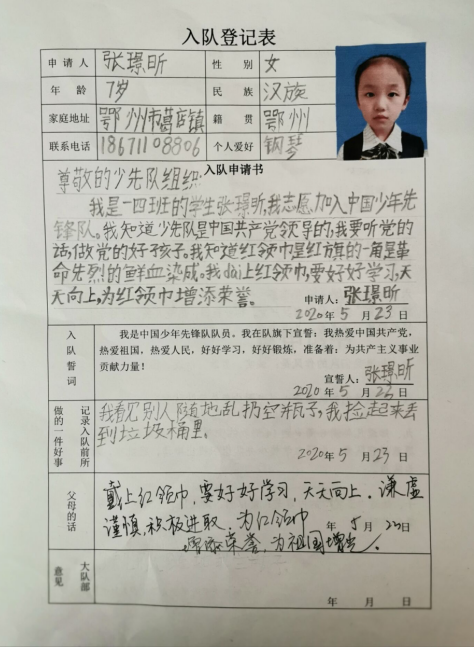 入队登记表
申请人 张璟昕 性别 女
年龄 7岁 民族 汉族
家庭地址 鄂州市葛店镇 籍贯 鄂州
联系电话 18671108806 个人爱好 钢琴
入队申请书
尊敬的少先队组织:
我是一四班的学生张璟昕,我志愿加入中国少年先
锋队。我知道少先队是中国共产党领导的,我要听党的
话,做党的好孩子。我知道红领巾是红旗的一角是革
命先烈的鲜血染成。我dai上红领巾,要好好学习,天
天向上,为红领巾增添荣誉。 申请人:张璟昕
2020年5月23日
入队誓词
我是中国少年先锋队队员。我在队旗下宣誓:我热爱中国共产党,
热爱祖国,热爱人民,好好学习,好好锻炼,准备着:为共产主义事业
贡献力量!
宣誓人:张璟昕
2020年5月23日
记录入队前所做的一件好事
我看见别人随地乱扔空瓶子,我捡起来丢
到垃圾桶里。
2020年5月23日
父母的话
戴上红领巾,要好好学习,天天向上。谦虚
谨慎,积极进取,为红领巾 年5月23日
增添荣誉,为祖国增光。
大队部意见
年 月 日